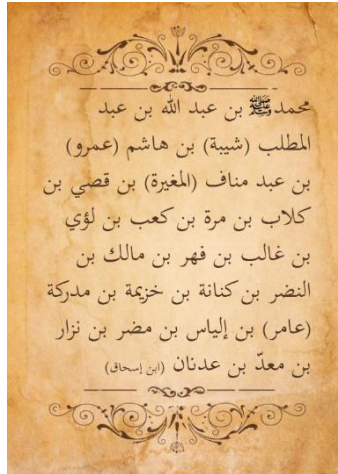 محمدﷺ بن عبد الله بن عبد
المطلب (شيبة) بن هاشم (عمرو)
بن عبد مناف (المغيرة) بن قصي بن
كلاب بن مرة بن كعب بن لؤي
بن غالب بن فهر بن مالك بن
النضر بن كنانة بن خزيمة بن مدركة
(عامر) بن إلياس بن مضر بن نزار
بن معدّ بن عدنان (ابن إسحاق)